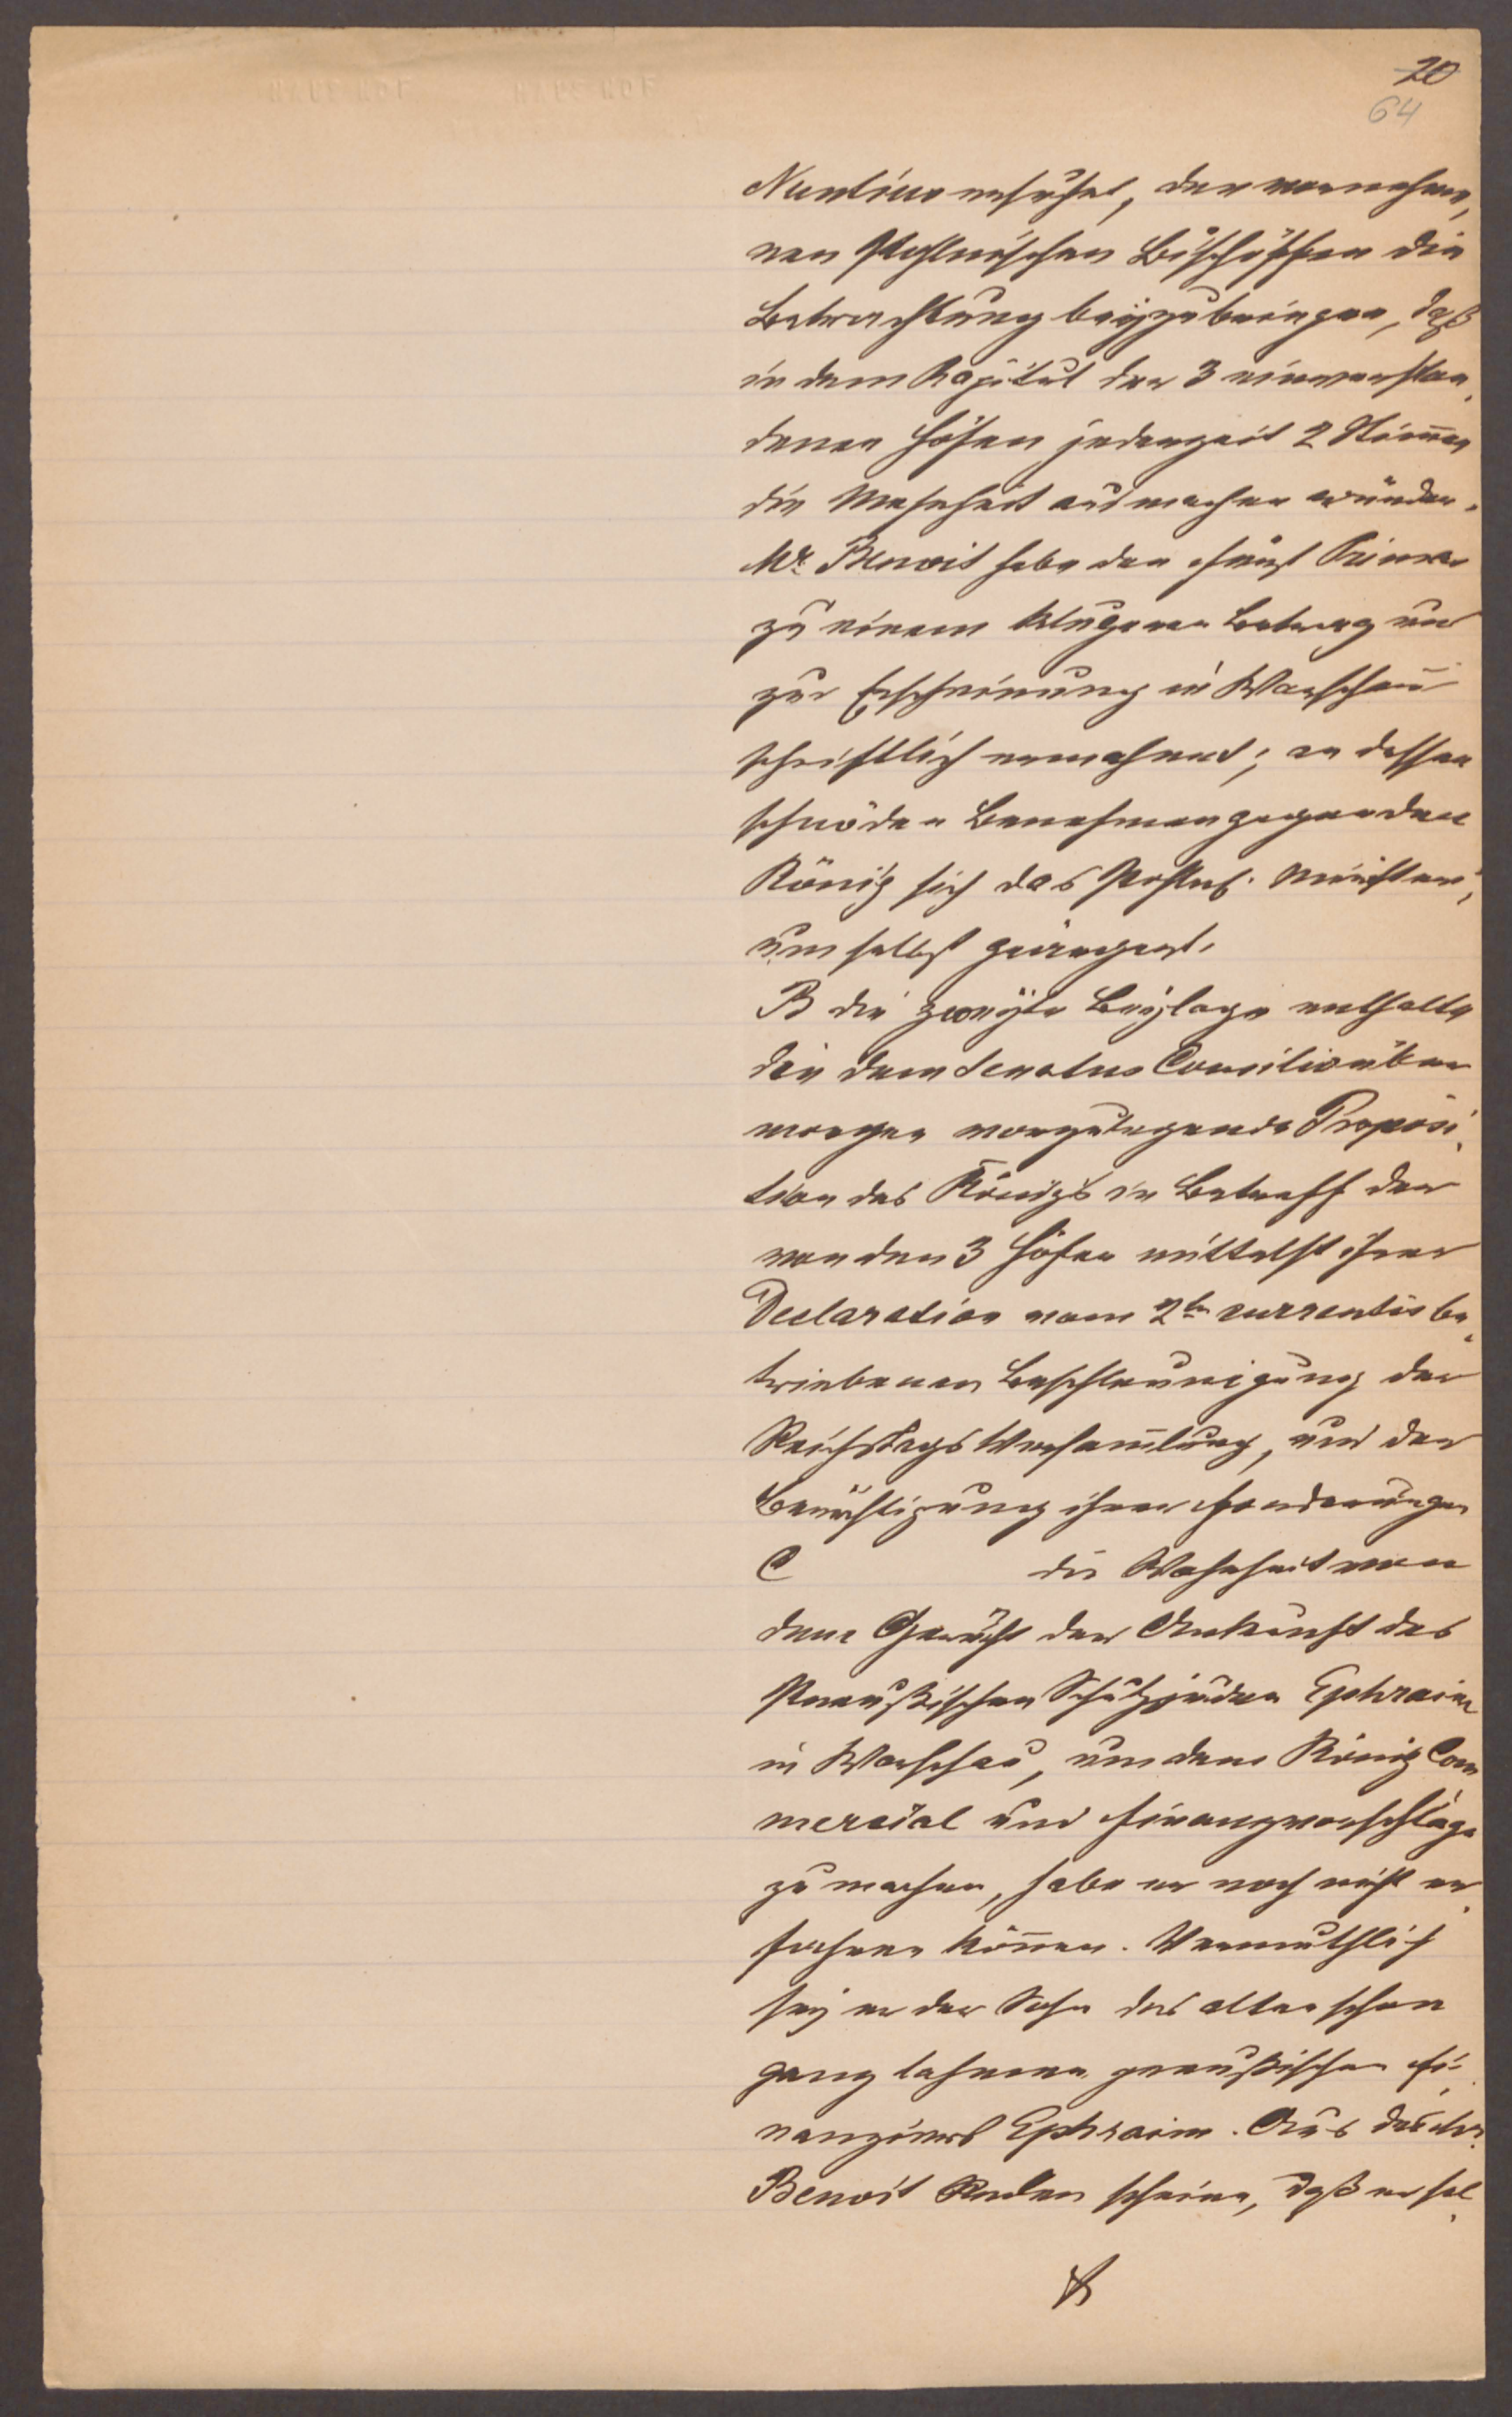 20
64
Nuntius ersuchet, den vornehme,
ren Pohlnischen Bischöffen die
Betrachtung beyzubringen, daß
in dem Kapitul der 3 einverstan,
denen Höfen jederzeit 2 Stim̄en
die Mehrheit ausmachen würden.
Mr. Benoit habe den Fürst Primas
zu einem klugeren Betrag und
zur Erscheinung in Warschau
schriftlich ermahnet; an dessen
schnöden Benehmen gegen den
König sich das Pohln. Ministeri,
um selbst geärgert.
B die zweyte Beylage enthalte
die dem Senatus Consilio über
morgen vorzulegende Proposi,
tion des Königs in Betreff der
von den 3 Höfen mittelst ihrer
Declaration vom 2ten currentis be,
triebenen Beschleunigung der
Reichstags Versam̄lung, und der
Berichtigung ihrer Forderungen
C die Wahrheit von
dem Gerücht der Ankunft des
Preußischen Schutzjuden Ephraim
in Warschau, um dem König Com
mercial und Finanzvorschläge
zu machen, habe er noch nicht er,
fahren kön̄en. Vermuthlich
sey er der Sohn des alten schon
ganz lahmen preußischen Fi,
nanziers Ephraim. Aus des Mr.
Benoit Reden scheine, daß er sel,